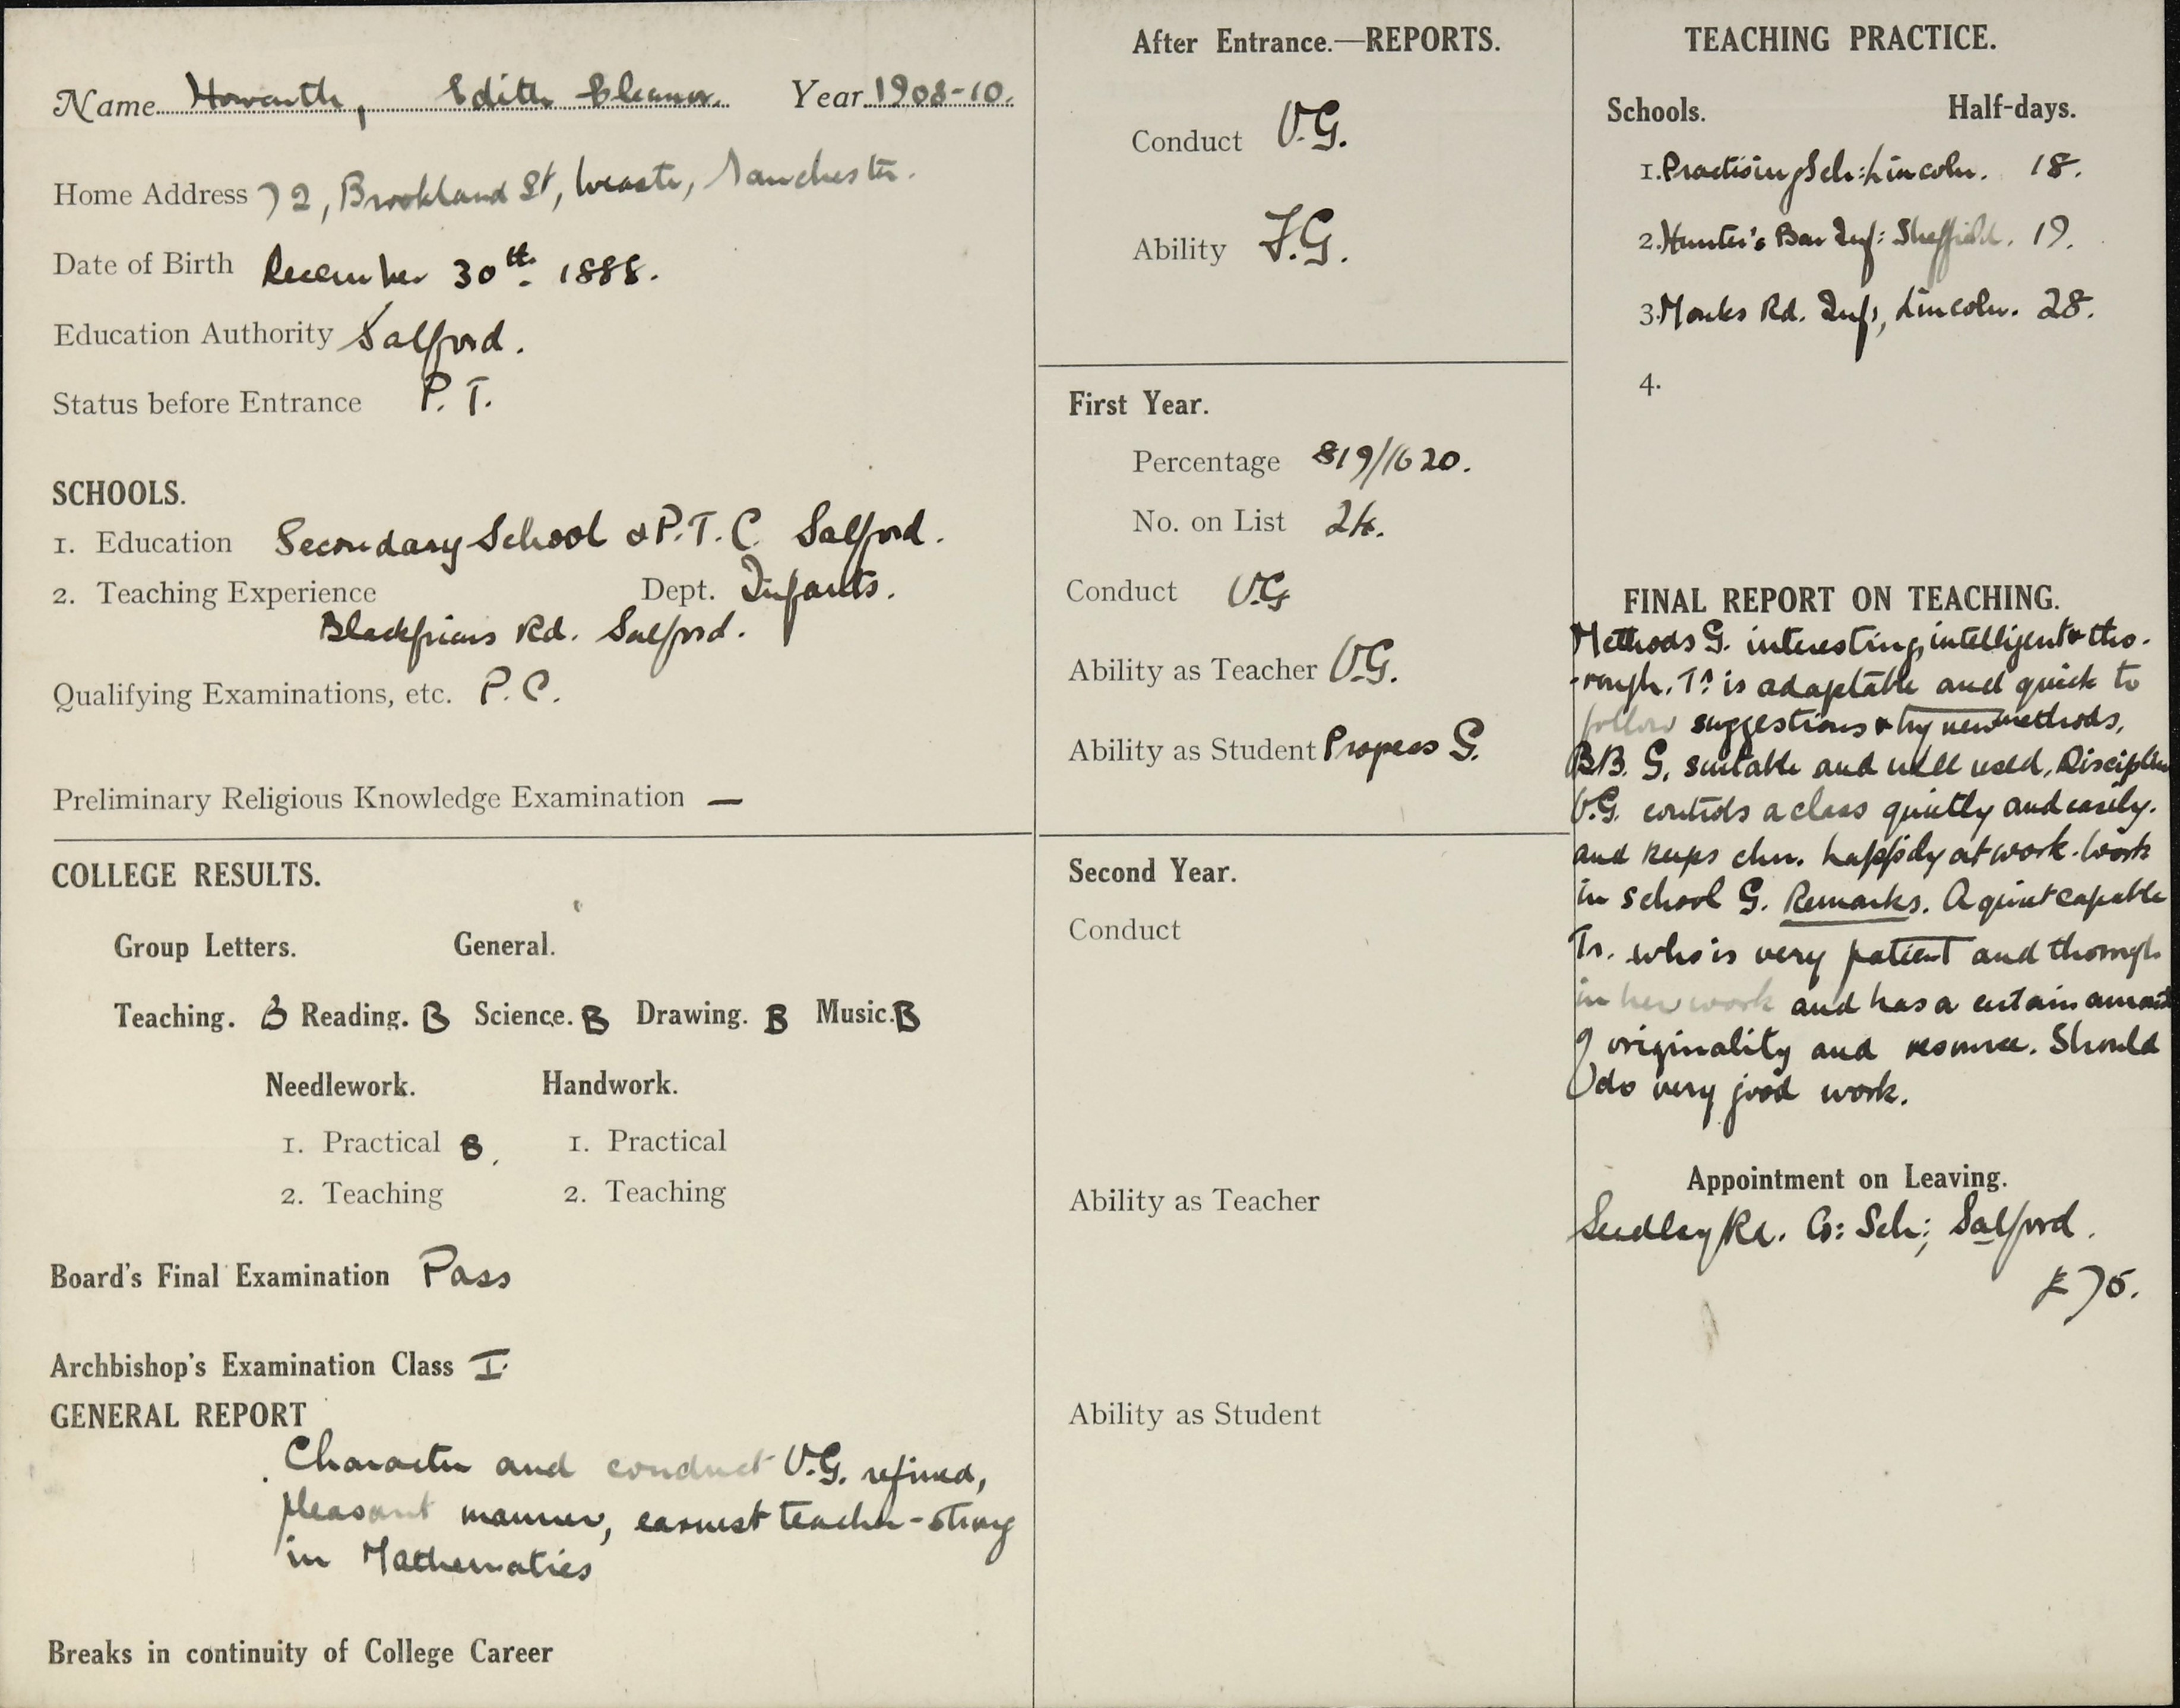 Name Howarth, Edith Eleanor. Year 1908-10.
Home Address 72, Brookland St, Weaste, Manchester.
Date of Birth December 30th. 1888.
Education Authority Salford.
Status before Entrance P. T.
SCHOOLS.
1. Education Secondary School & P. T. C. Salford.
2. Teaching Experience Dept. Infants.
Blackfriars Rd. Salford.
Qualifying Examinations, etc. P. C.
Preliminary Religious Knowledge Examination —
COLLEGE RESULTS.
Group Letters. General.
Teaching. B Reading. B Science. B Drawing. B Music. B
Needlework. Handwork.
1. Practical B. 1. Practical
2. Teaching 2. Teaching
Board's Final Examination Pass
Archbishop's Examination Class I.
GENERAL REPORT
Character and conduct V.G. refined,
pleasant manner, earnest teacher - strong
in Mathematics
Breaks in continuity of College Career
After Entrance.—REPORTS.
Conduct V.G.
Ability F.G.
First Year.
Percentage 819/1620.
No. on List 24.
Conduct V.G
Ability as Teacher V.G.
Ability as Student Progress G.
Second Year.
Conduct
Ability as Teacher
Ability as Student
TEACHING PRACTICE.
Schools. Half-days.
1. Practising Sch: Lincoln. 18.
2. Hunter's Bar Inf: Sheffield. 19.
3. Monks Rd. Inf:, Lincoln. 28.
4.
FINAL REPORT ON TEACHING.
Methods G. interesting, intelligent & tho-
-rough. Tr is adaptable and quick to
follow suggestions & try new methods.
BB. G. suitable and well used. Discipline
V.G. controls a class quietly and easily.
and keeps chn. happily at work. Work
in school G. Remarks. A quiet capable
Tr. who is very patient and thorough
in her work and has a certain amount
of originality and resource. Should
do very good work.
Appointment on Leaving.
Seedley Rd. Co: Sch:, Salford.
£75.